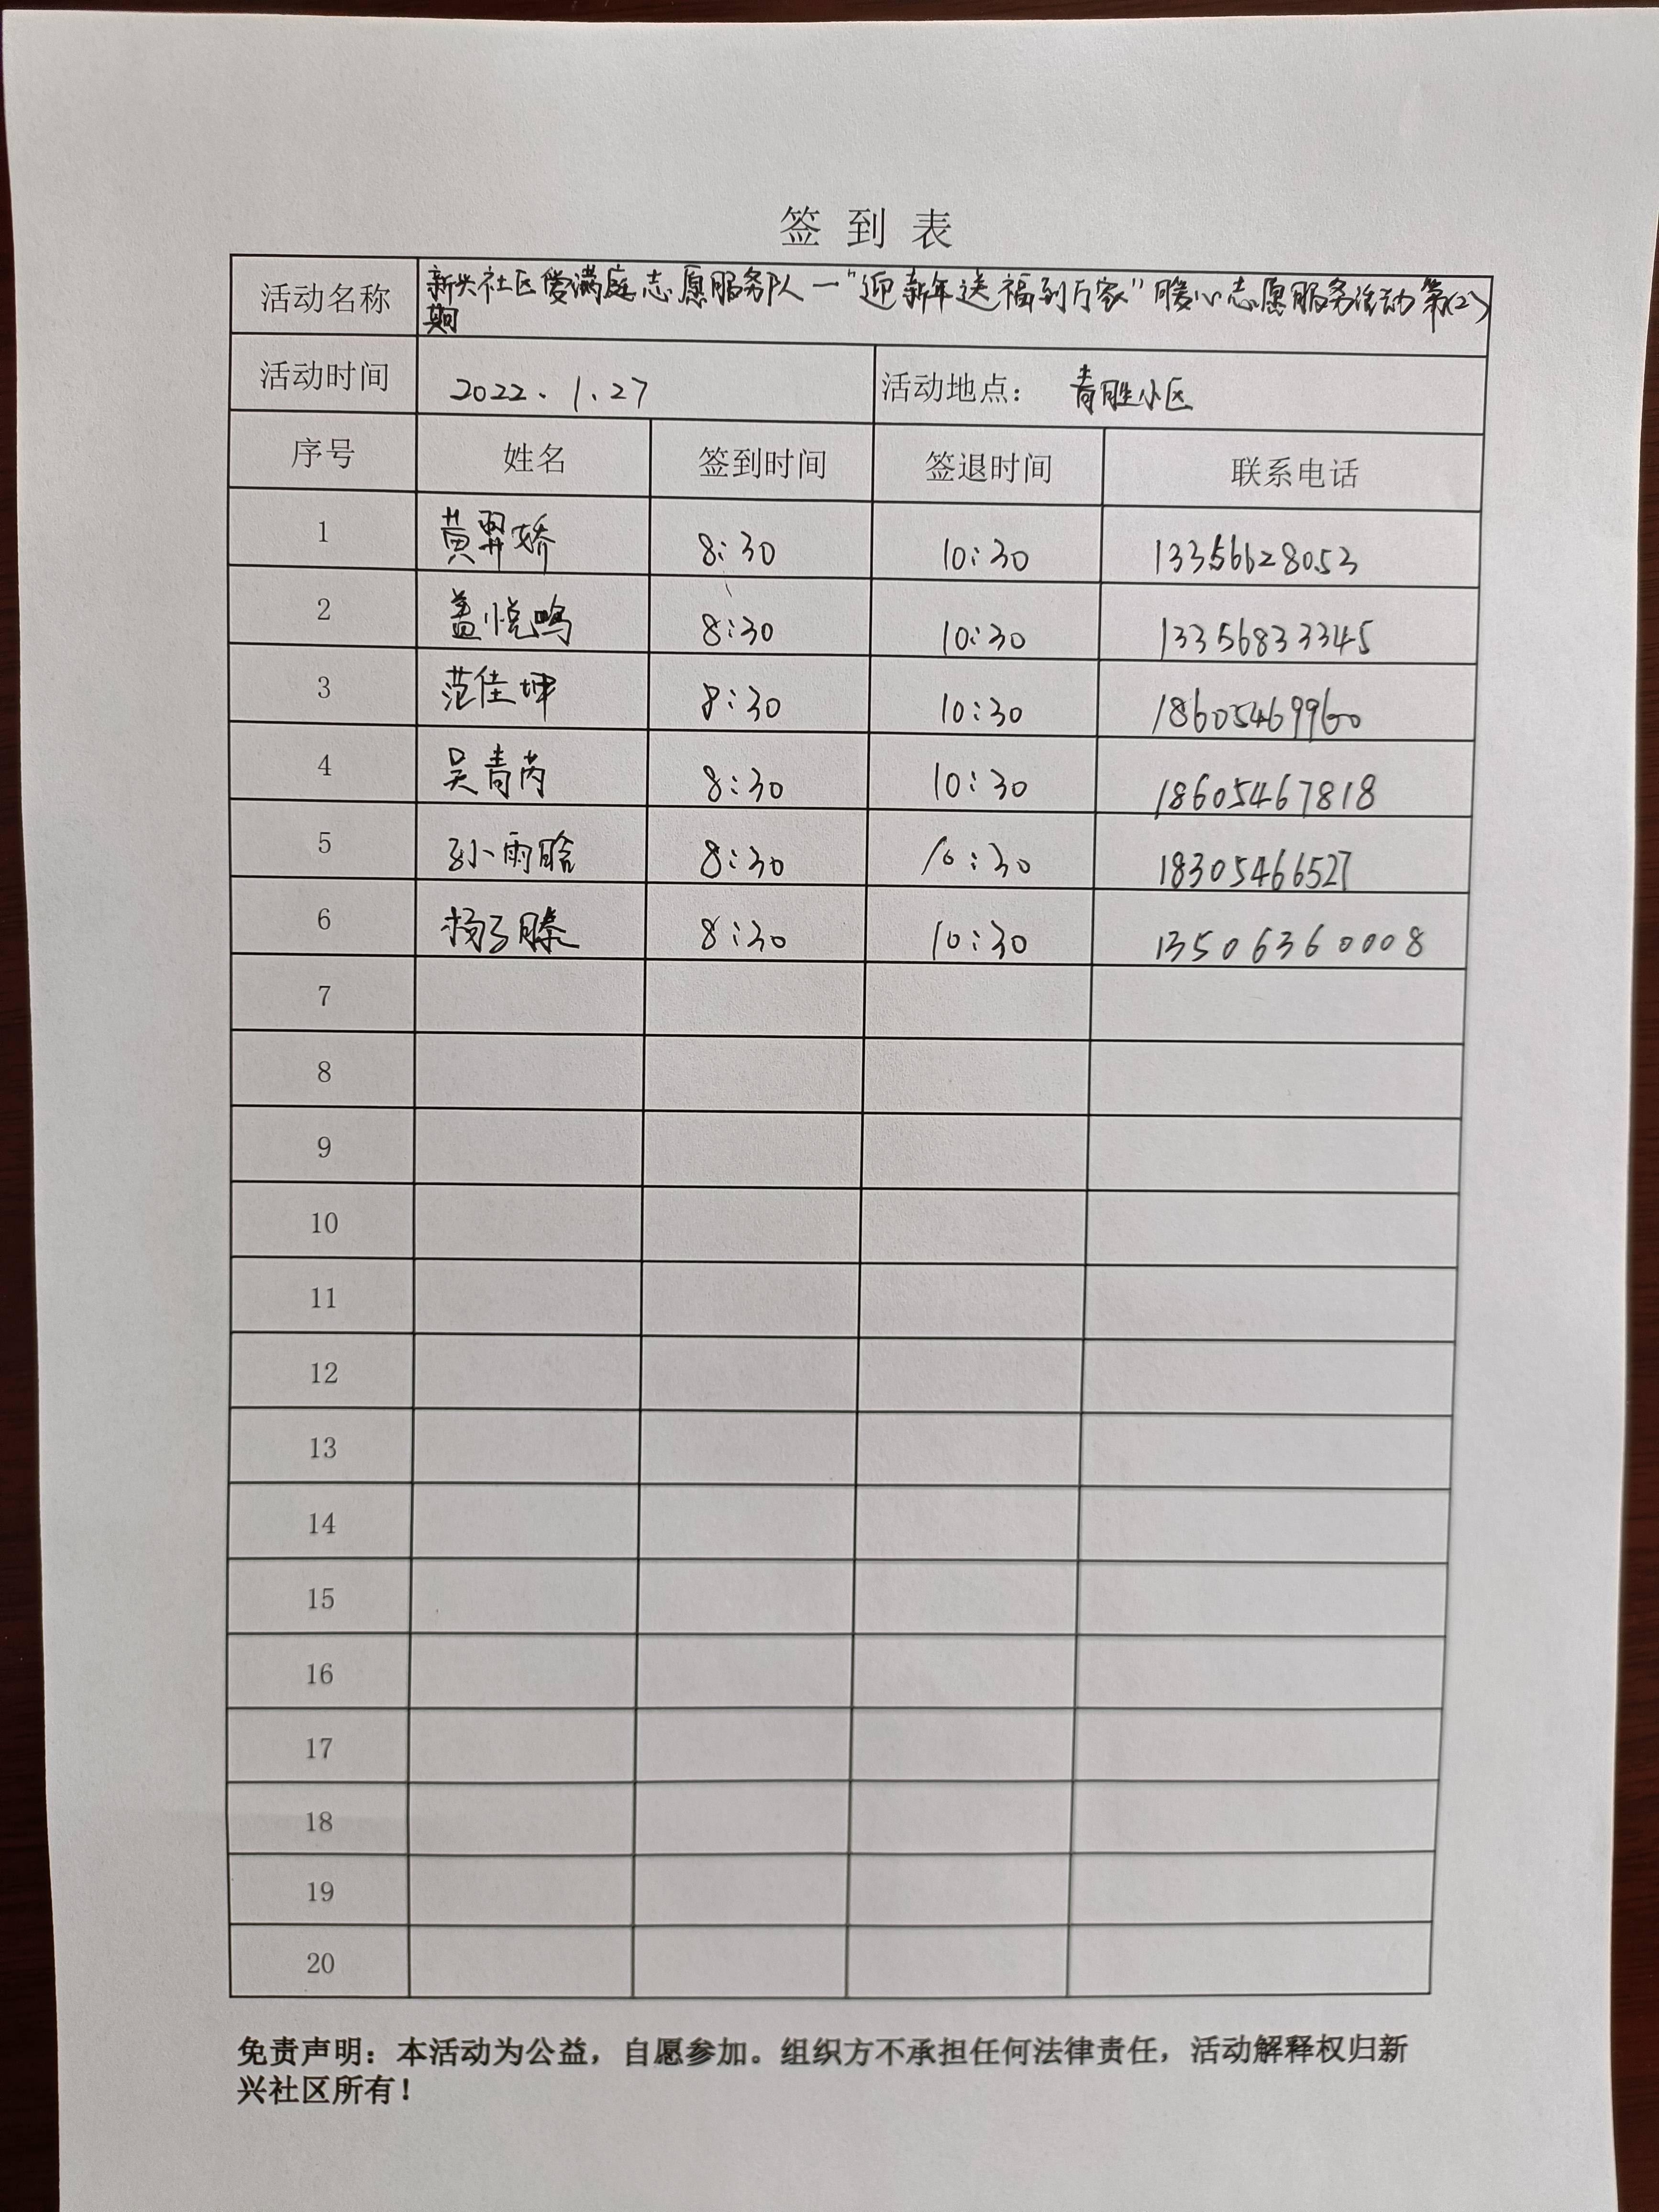 签到表
活动名称 新兴社区爱满庭志愿服务队一"迎新年送福到万家"暖心志愿服务活动第(2)
期
活动时间 2022.1.27 活动地点： 青胜小区
序号 姓名 签到时间 签退时间 联系电话
1 黄羿娇 8:30 10:30 13356628053
2 盖悦鸣 8:30 10:30 13356833345
3 范佳坤 8:30 10:30 18605469960
4 吴青芮 8:30 10:30 18605467818
5 孙雨晗 8:30 10:30 18305466527
6 杨子滕 8:30 10:30 13506360008
7
8
9
10
11
12
13
14
15
16
17
18
19
20
免责声明：本活动为公益，自愿参加。组织方不承担任何法律责任，活动解释权归新
兴社区所有！